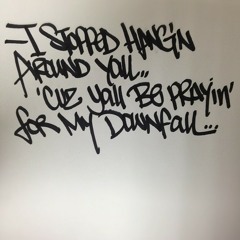 -I STOPPED HANGIN
AROUND YALL..
'CUZ YALL BE PRAYIN'
FOR MY DOWNFALL...